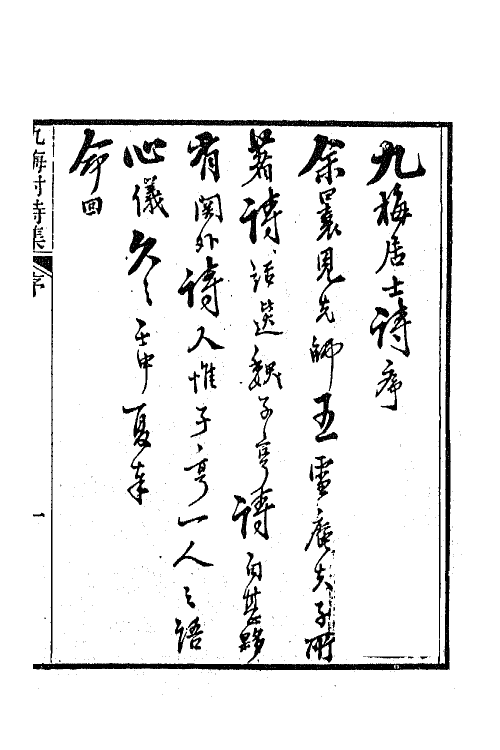 九梅居士詩序
余曩見先師王雪廬夫子所
著詩話選魏子亨詩句甚夥
有關外詩人惟子亨一人之語
心儀久之壬申夏奉
命回
九梅村詩集
序
一